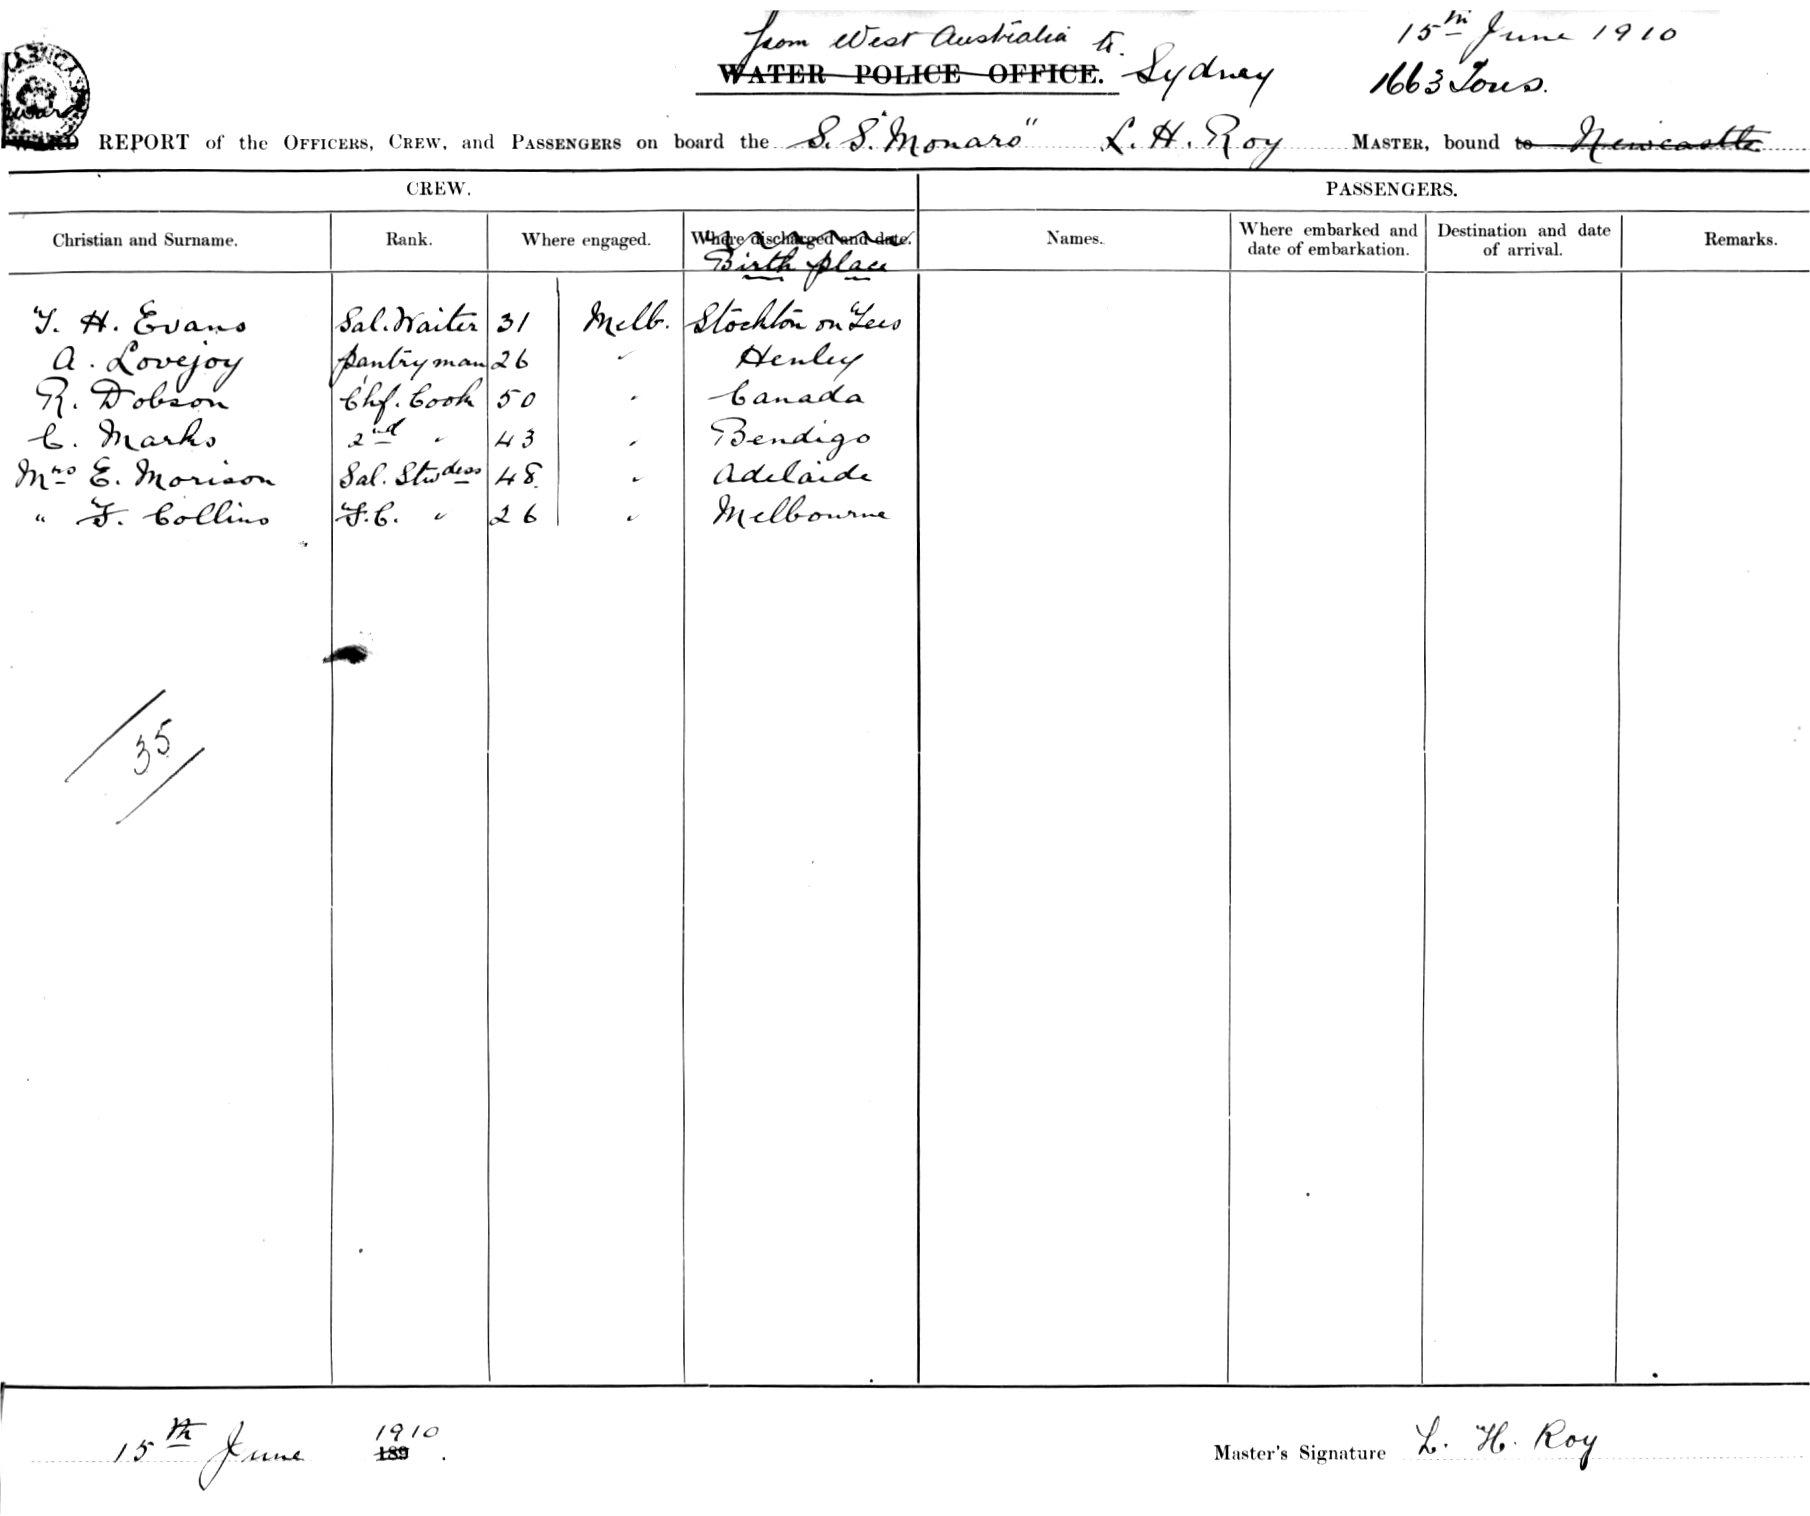 from West Australia to 15th June 1910
WATER POLICE OFFICE. Sydney 1663 Tons.
REPORT of the OFFICERS, CREW, and PASSENGERS on board the S.S. "Monaro" L. H. Roy MASTER, bound to Newcastle
CREW. PASSENGERS.
Christian and Surname. Rank. Where engaged. Where discharged and date. Names. Where embarked and date of embarkation. Destination and date of arrival. Remarks.
Birth place
T. H. Evans Sal. Waiter 31 Melb. Stockton on Tees
A. Lovejoy pantryman 26 " Henley
R. Dobson Chf. Cook 50 " Canada
C. Marks 2nd " 43 " Bendigo
Mrs E. Morison Sal. Stwdess 48 " Adelaide
" F. Collins F.C. " 26 " Melbourne
35
15th June 1910
189 .
Master's Signature L. H. Roy